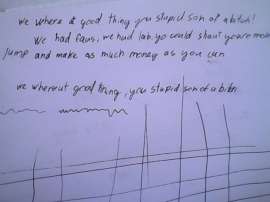 we where a good thing you stupid son of a bitch!
We had faus, we had lab. yo could shout you're mom
jump and make as much money as you can
we wherent good thing, you stupid son of a bitch